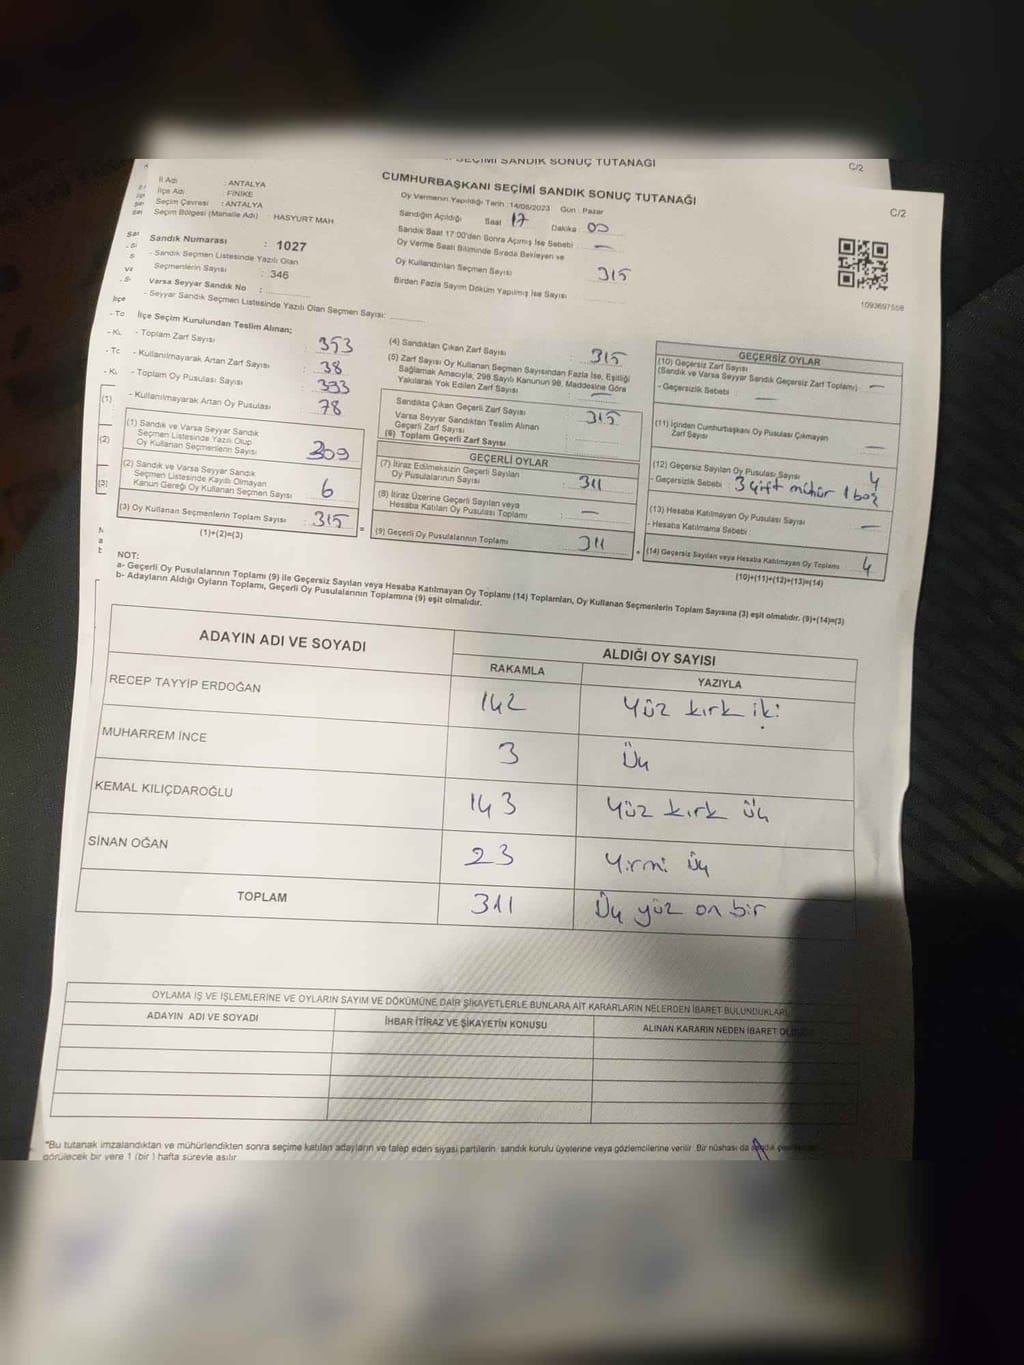 SEÇİMİ SANDIK SONUÇ TUTANAĞI
C/2
CUMHURBAŞKANI SEÇİMİ SANDIK SONUÇ TUTANAĞI
C/2
İl Adı : ANTALYA
İlçe Adı : FİNİKE
Seçim Çevresi : ANTALYA
Seçim Bölgesi (Mahalle Adı) : HASYURT MAH
Sandık Numarası : 1027
- Sandık Seçmen Listesinde Yazılı Olan
Seçmenlerin Sayısı : 346
Varsa Seyyar Sandık No :
- Seyyar Sandık Seçmen Listesinde Yazılı Olan Seçmen Sayısı:
Oy Vermenin Yapıldığı Tarih :14/05/2023 Gün : Pazar
Sandığın Açıldığı Saat 17 Dakika 00
Sandık Saat 17:00'den Sonra Açılmış İse Sebebi : —
Oy Verme Saati Bitiminde Sırada Bekleyen ve
Oy Kullandırılan Seçmen Sayısı 315
Birden Fazla Sayım Döküm Yapılmış İse Sayısı
1093697558
İlçe Seçim Kurulundan Teslim Alınan;
- Toplam Zarf Sayısı : 353
- Kullanılmayarak Artan Zarf Sayısı : 38
- Toplam Oy Pusulası Sayısı : 393
- Kullanılmayarak Artan Oy Pusulası : 78
(1) Sandık ve Varsa Seyyar Sandık
Seçmen Listesinde Yazılı Olup
Oy Kullanan Seçmenlerin Sayısı 309
(2) Sandık ve Varsa Seyyar Sandık
Seçmen Listesinde Kaydı Olmayan
Kanun Gereği Oy Kullanan Seçmen Sayısı 6
(3) Oy Kullanan Seçmenlerin Toplam Sayısı 315
(1)+(2)=(3)
(4) Sandıktan Çıkan Zarf Sayısı : 315
(5) Zarf Sayısı Oy Kullanan Seçmen Sayısından Fazla İse, Eşitliği
Sağlamak Amacıyla, 298 Sayılı Kanunun 98. Maddesine Göre
Yakılarak Yok Edilen Zarf Sayısı : —
Sandıkta Çıkan Geçerli Zarf Sayısı : 315
Varsa Seyyar Sandıktan Teslim Alınan
Geçerli Zarf Sayısı
(6) Toplam Geçerli Zarf Sayısı
GEÇERLİ OYLAR
(7) İtiraz Edilmeksizin Geçerli Sayılan
Oy Pusulalarının Sayısı : 311
(8) İtiraz Üzerine Geçerli Sayılan veya
Hesaba Katılan Oy Pusulası Toplamı : —
(9) Geçerli Oy Pusulalarının Toplamı 311
GEÇERSİZ OYLAR
(10) Geçersiz Zarf Sayısı
(Sandık ve Varsa Seyyar Sandık Geçersiz Zarf Toplamı) : —
- Geçersizlik Sebebi : —
(11) İçinden Cumhurbaşkanı Oy Pusulası Çıkmayan
Zarf Sayısı : —
(12) Geçersiz Sayılan Oy Pusulası Sayısı : 4
- Geçersizlik Sebebi : 3 çift mühür 1 boş
(13) Hesaba Katılmayan Oy Pusulası Sayısı : —
- Hesaba Katılmama Sebebi :
(14) Geçersiz Sayılan veya Hesaba Katılmayan Oy Toplamı 4
(10)+(11)+(12)+(13)=(14)
NOT:
a- Geçerli Oy Pusulalarının Toplamı (9) ile Geçersiz Sayılan veya Hesaba Katılmayan Oy Toplamı (14) Toplamları, Oy Kullanan Seçmenlerin Toplam Sayısına (3) eşit olmalıdır. (9)+(14)=(3)
b- Adayların Aldığı Oyların Toplamı, Geçerli Oy Pusulalarının Toplamına (9) eşit olmalıdır.
ADAYIN ADI VE SOYADI
ALDIĞI OY SAYISI
RAKAMLA YAZIYLA
RECEP TAYYİP ERDOĞAN 142 Yüz kırk iki
MUHARREM İNCE 3 Üç
KEMAL KILIÇDAROĞLU 143 Yüz kırk üç
SİNAN OĞAN 23 Yirmi üç
TOPLAM 311 Üç yüz on bir
OYLAMA İŞ VE İŞLEMLERİNE VE OYLARIN SAYIM VE DÖKÜMÜNE DAİR ŞİKAYETLERLE BUNLARA AİT KARARLARIN NELERDEN İBARET BULUNDUKLARI
ADAYIN ADI VE SOYADI İHBAR İTİRAZ VE ŞİKAYETİN KONUSU ALINAN KARARIN NEDEN İBARET
*Bu tutanak imzalandıktan ve mühürlendikten sonra seçime katılan adayların ve talep eden siyasi partilerin sandık kurulu üyelerine veya gözlemcilerine verilir. Bir nüshası da sandık
görülecek bir yere 1 (bir) hafta süreyle asılır